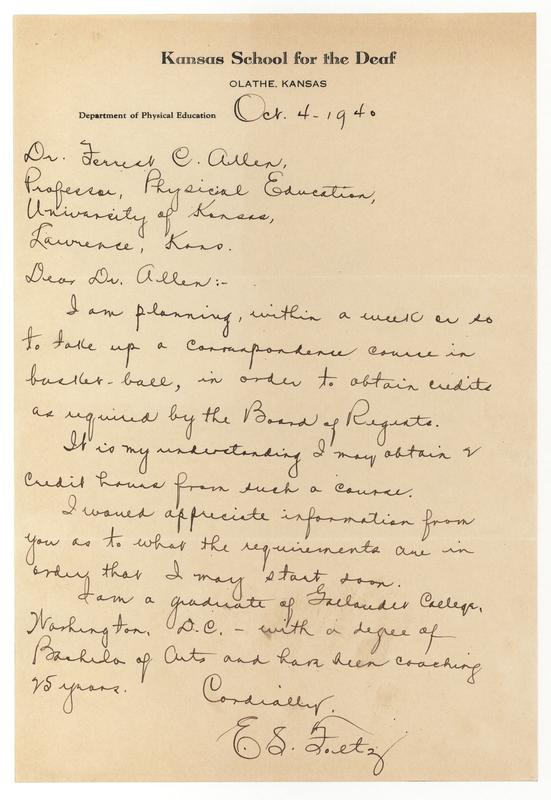 Kansas School for the Deaf
OLATHE, KANSAS
Department of Physical Education Oct. 4-1940
Dr. Forrest C. Allen,
Professor, Physical Education,
University of Kansas,
Lawrence, Kans.
Dear Dr. Allen:-
I am planning, within a week or so
to take up a correspondence course in
basket-ball, in order to obtain credits
as required by the Board of Regents.
It is my understanding I may obtain 2
credit hours from such a course.
I would appreciate information from
you as to what the requirements are in
order that I may start soon.
I am a graduate of Gallaudet College,
Washington, D.C. - with a degree of
Bachelor of Arts and have been coaching
25 years.
Cordially,
E. S. Foltz